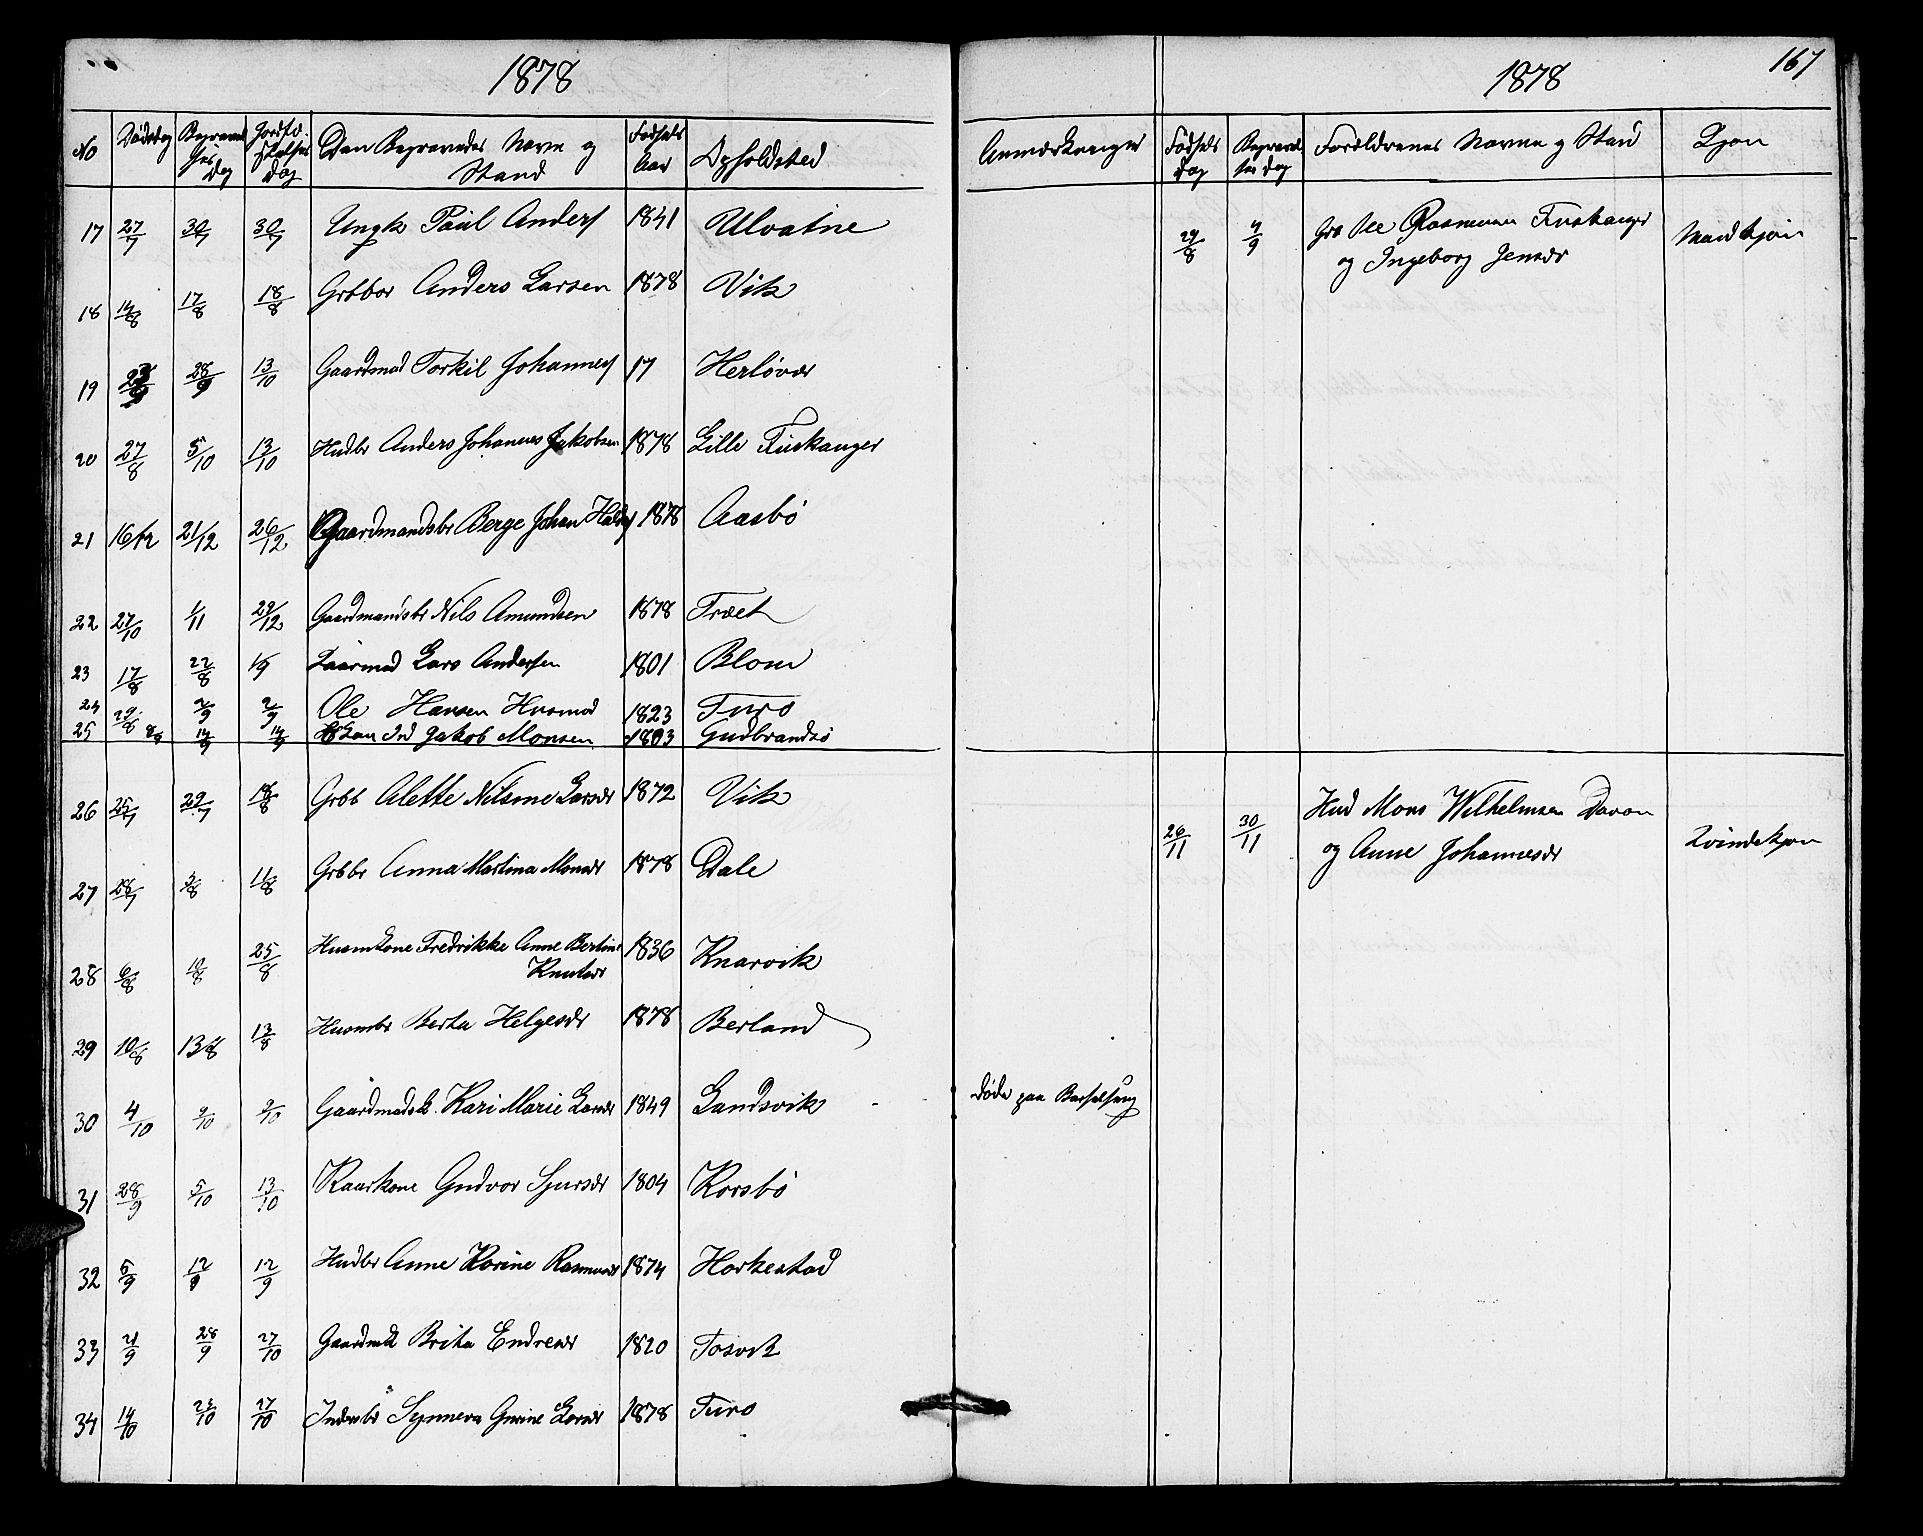 1878
No Dødsdag Begravelses Dag Jordfæstelses Dag Den Begravedes Navn og Stand Fødsels Aar Opholdsted
17 27/7 30/7 30/7 Ungk Paul Anders 1841 Ulvatne
18 14/8 17/8 18/8 Grbbr Anders Larsen 1878 Vik
19 28/9 13/10 Gaardmd Torkil Johannes 17 Herløvær
20 27/8 5/10 13/10 Husbr Anders Johannes Jakobsen 1878 Lille Fuskanger
21 16/12 21/12 26/12 Gaardmandsbr Berge Johan 1878 Aasbø
22 27/10 1/11 29/12 Gaardmandsbr Nils Amundsen 1878 Træet
23 17/8 22/8 1/9 Kaarmd Lars Andersen 1801 Blom
24 29/8 2/9 2/9 Ole Hansen Husmd 1823 Turø
25 14/9 14/9 Ind Jakob Monsen 1803 Gudbrandsø
26 25/7 29/7 18/8 Grbb Alette Nilsine Larsdr 1872 Vik
27 28/7 3/8 11/8 Grbbr Anna Martina Monsdr 1878 Dale
28 6/8 10/8 25/8 Husmkone Fredrikke Anne Bertine 1836 Knarvik
Knutsdr
29 10/8 13/8 13/8 Husmbr Berta Helgesdr 1878 Berland
30 4/10 9/10 9/10 Gaardmdsk. Kari Marie Larsdr 1849 Landsvik
31 28/9 5/10 13/10 Kaarkone Gudvor Sjursdr 1804 Korsbø
32 5/9 12/9 12/9 Husbr Anne Karine Rasmusdr 1874 Horkestad
33 21/9 28/9 27/10 Gaardmk Brita Endresdr 1820 Tosvik
34 14/10 23/10 27/10 Indrsbr Synneva Gurine Larsdr 1878 Turø
1878
167
Anmærkninger Fødsels dag Begravelses dag Forældrenes Navne og Stand Kjøn
29/8 4/9 Grb Ole Rasmusen Fuskanger Mandkjøn
og Ingeborg Jensdr
26/11 30/11 Hus Mons Wilhelmsen Davan Kvindekjøn
og Anne Johannesdr
døde paa Barselseng